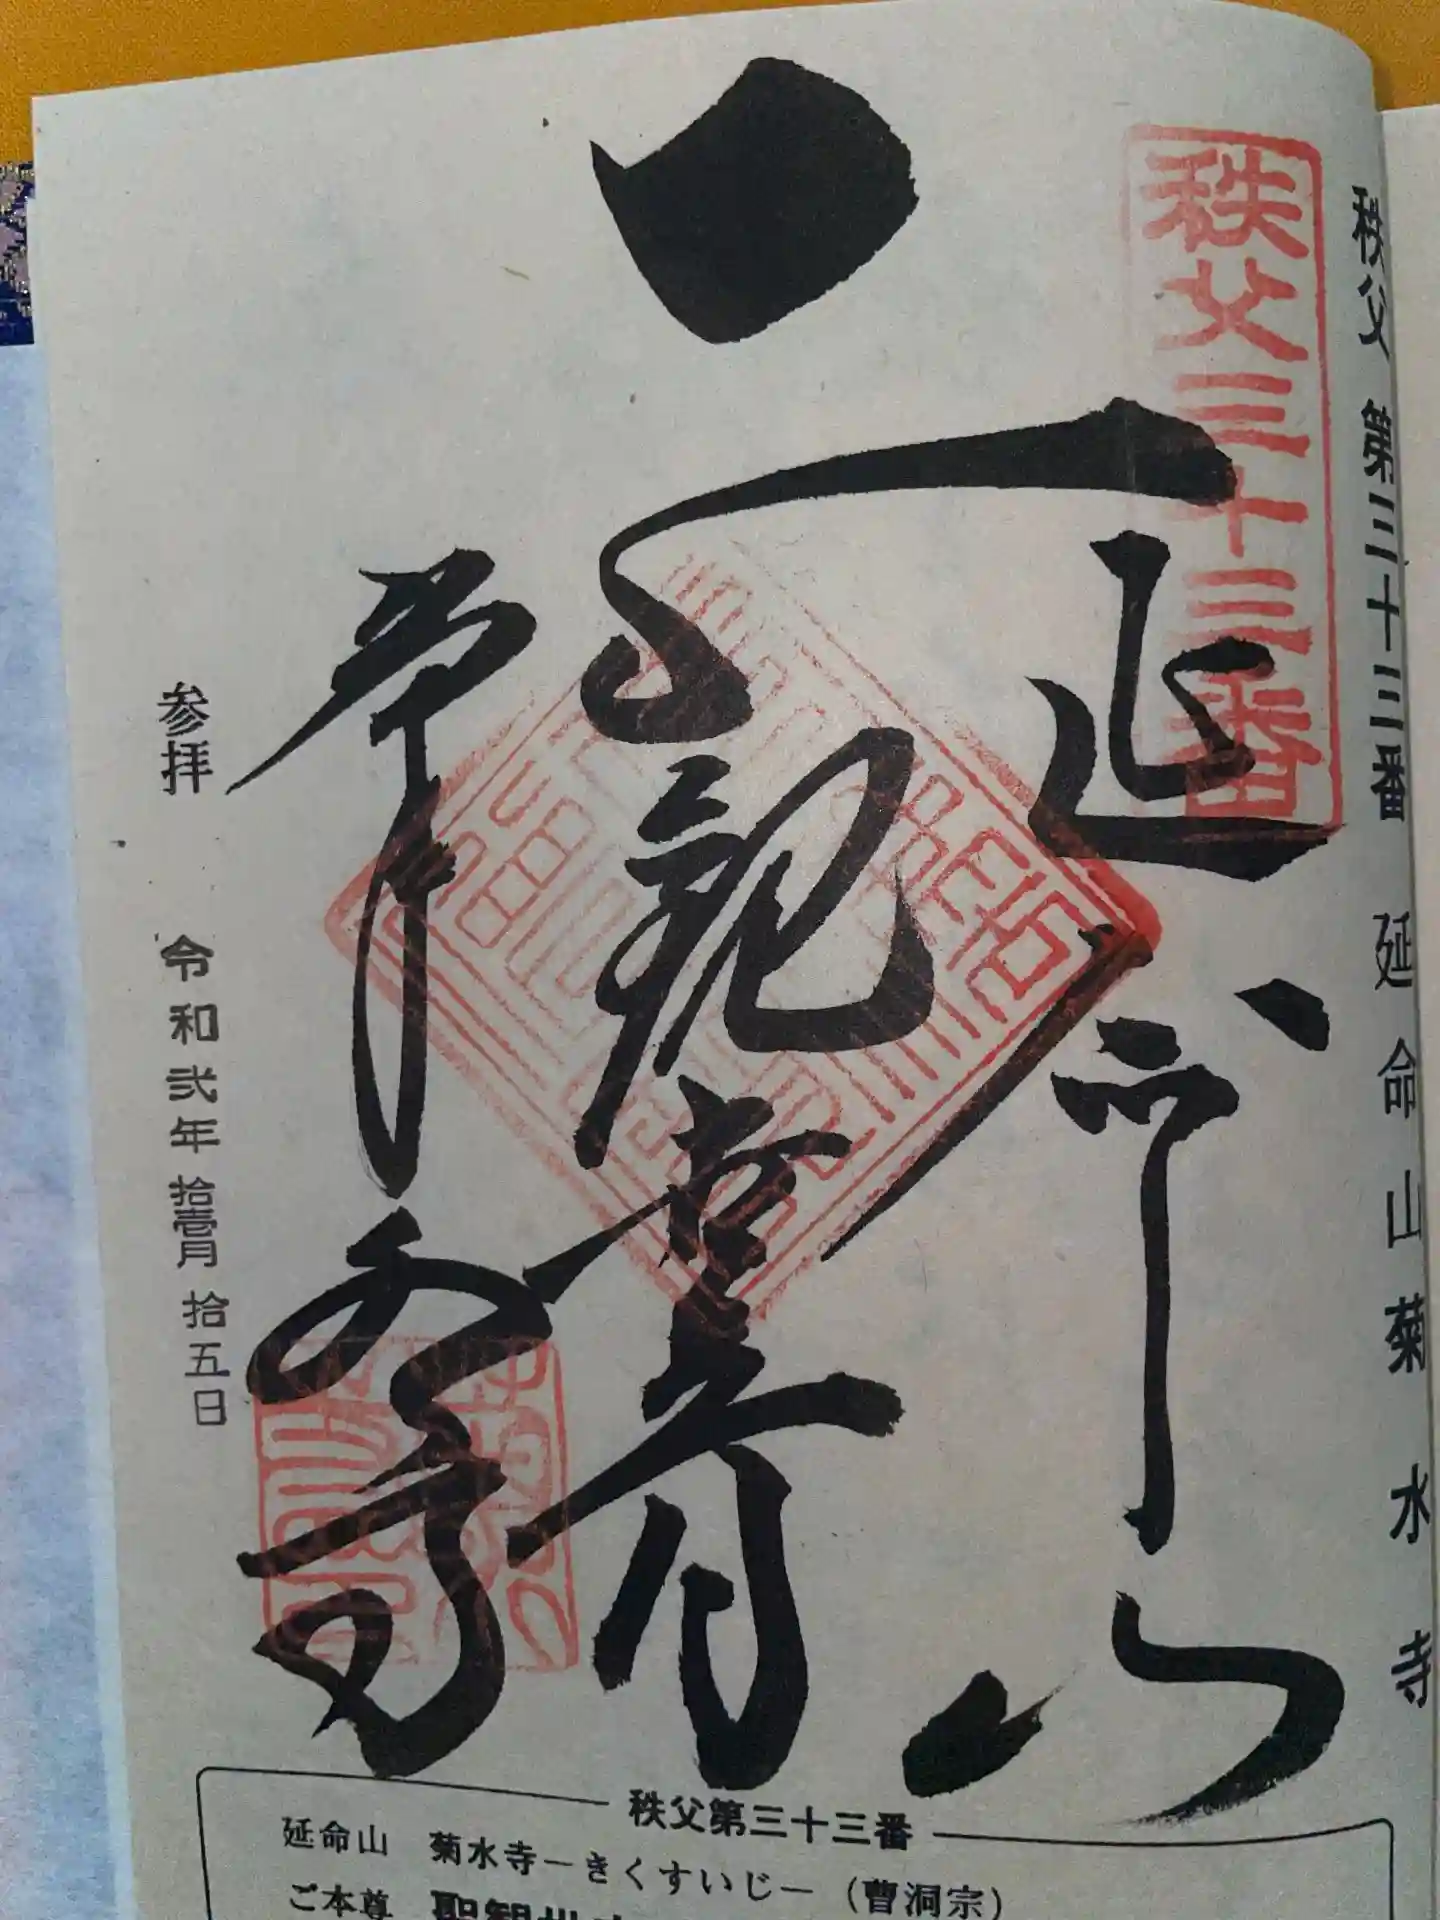 秩父 第三十三番 延命山菊水寺
秩父三十三番
延命山
正観世音
菊水寺
参拝 令和弐年 拾壱月 拾五日
秩父第三十三番
延命山 菊水寺ーきくすいじー(曹洞宗)
ご本尊